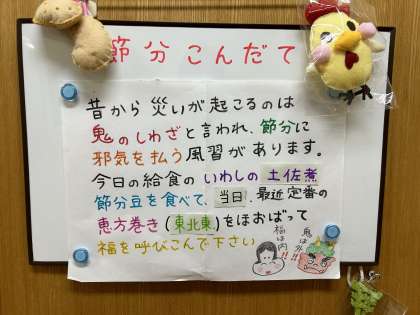 節分こんだて
昔から災いが起こるのは
鬼のしわざと言われ、節分に
邪気を払う風習があります。
今日の給食のいわしの土佐煮
節分豆を食べて、当日、最近定番の
恵方巻き(東北東)をほおばって
福を呼びこんで下さい
福は内!!
鬼は外!!